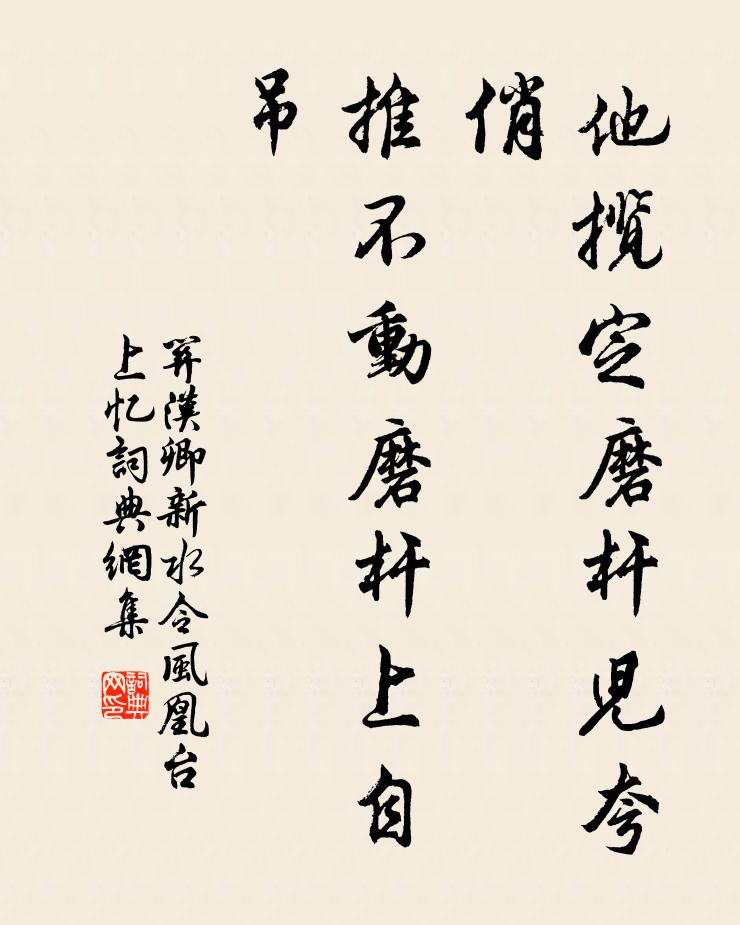 他攬定磨杆兒夸
俏
推不動磨杆上自
吊
关漢卿新水令風凰台
上忆詞典網集
詞典
网印